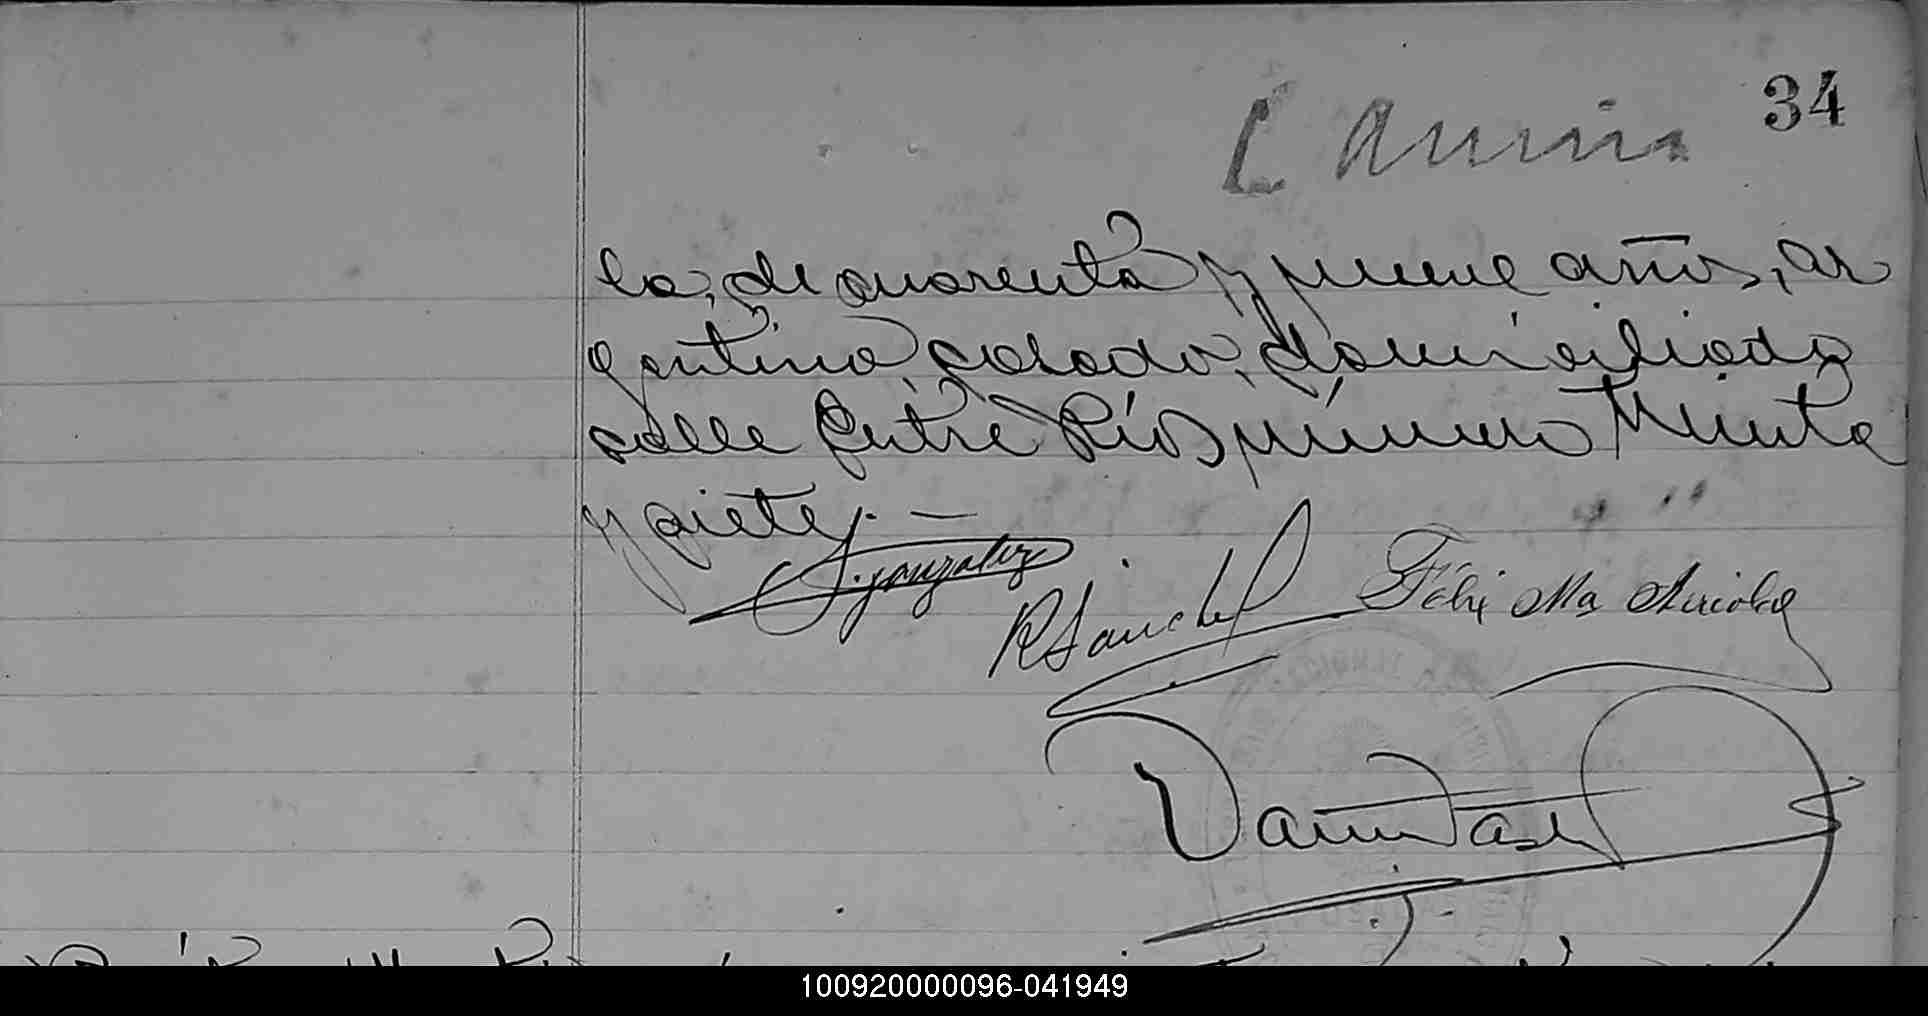 34
la, de cuarenta y nueve años, ar
gentino, casado, domiciliado
calle Entre Ríos número treinta
y siete. —
S. Gonzalez
R Sanchez Félix Ma
100920000096-041949